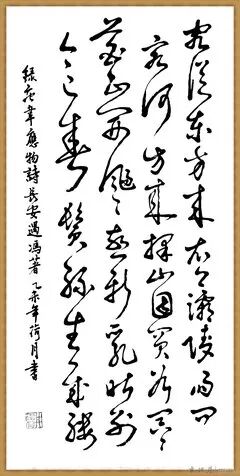 客從東方來衣上灞陵雨問
客何為來採山因買斧冥冥
花正開颺颺燕新乳昨別
今已春鬢絲生幾縷
錄唐韋應物詩長安遇馮著 乙未年荷月書